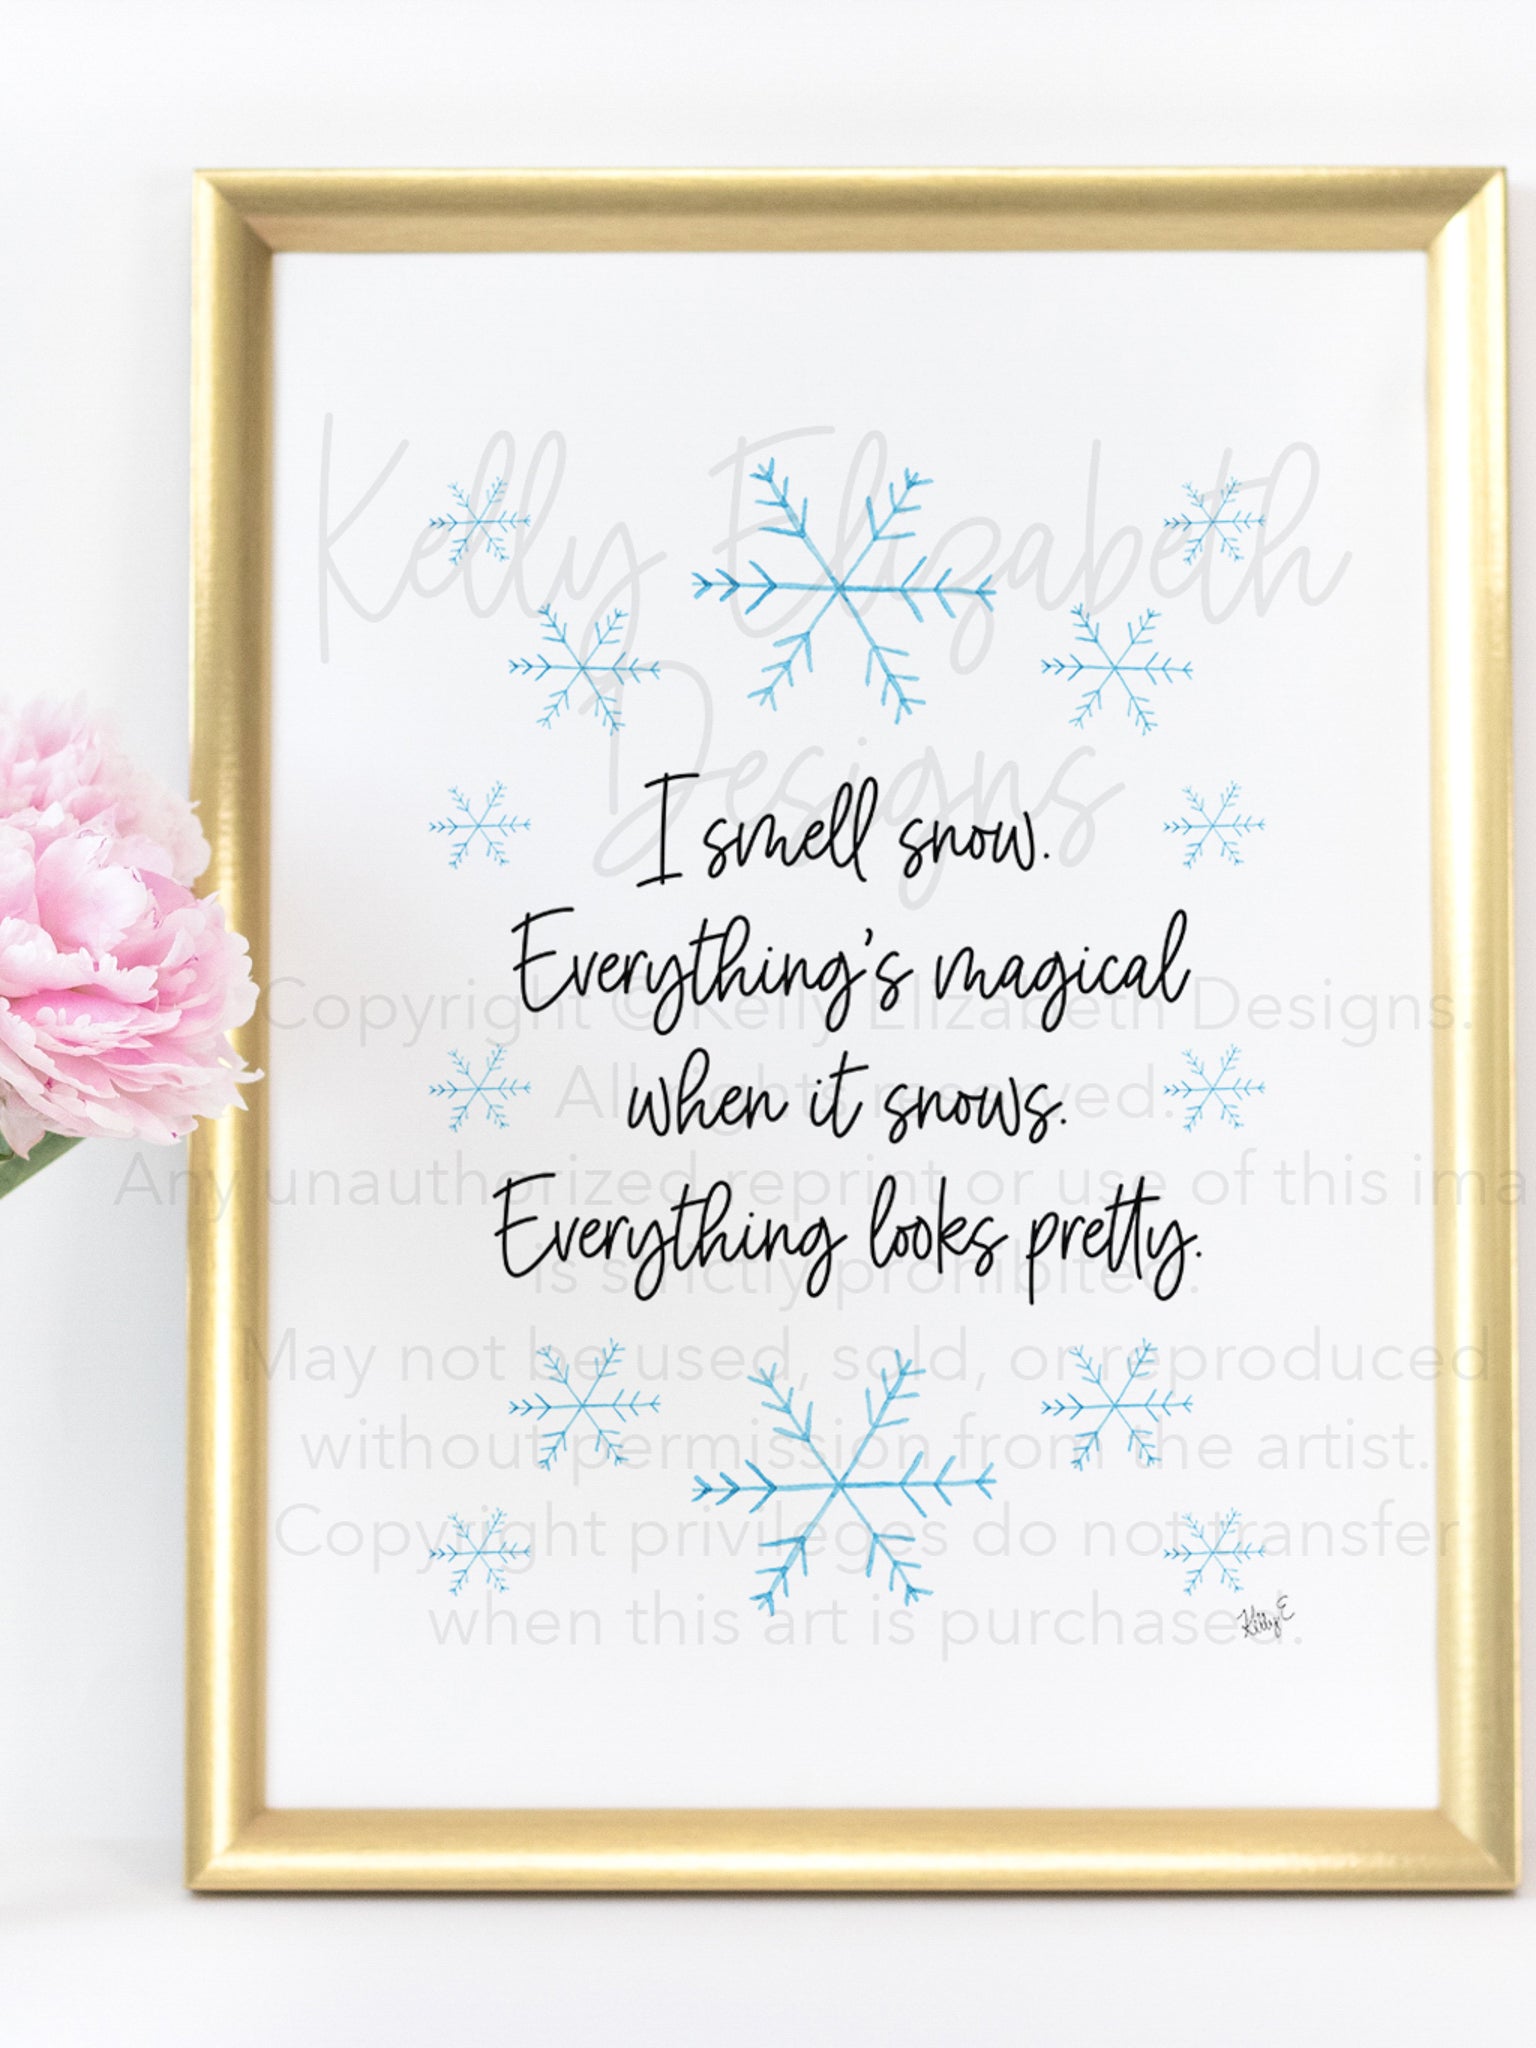 Kelly Elizabeth
Designs
I smell snow.
Everything's magical
Copyright © Kelly Elizabeth Designs.
when it snows.
All rights reserved.
Any unauthorized reprint or use of this ima
Everything looks pretty.
is strictly prohibited.
May not be used, sold, or reproduced
without permission from the artist.
Copyright privileges do not transfer
when this art is purchased.
KellyE